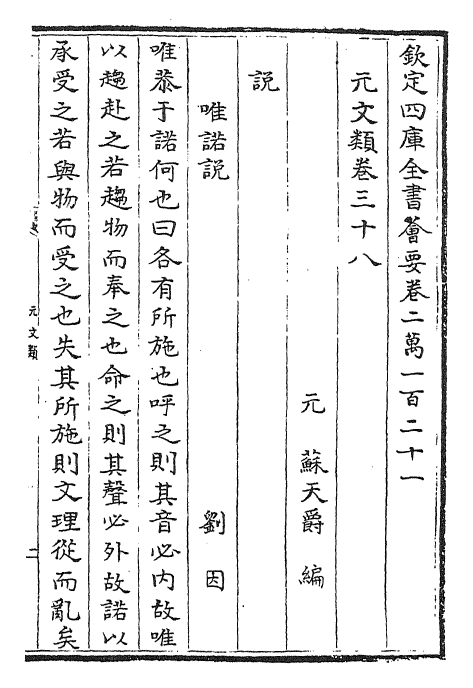 欽定四庫全書薈要卷二萬一百二十一
元文類卷三十八
元　蘇天爵　編
説
唯諾説　劉因
唯恭于諾何也曰各有所施也呼之則其音必内故唯
以趨赴之若趨物而奉之也命之則其聲必外故諾以
承受之若與物而受之也失其所施則文理從而亂矣
元文類